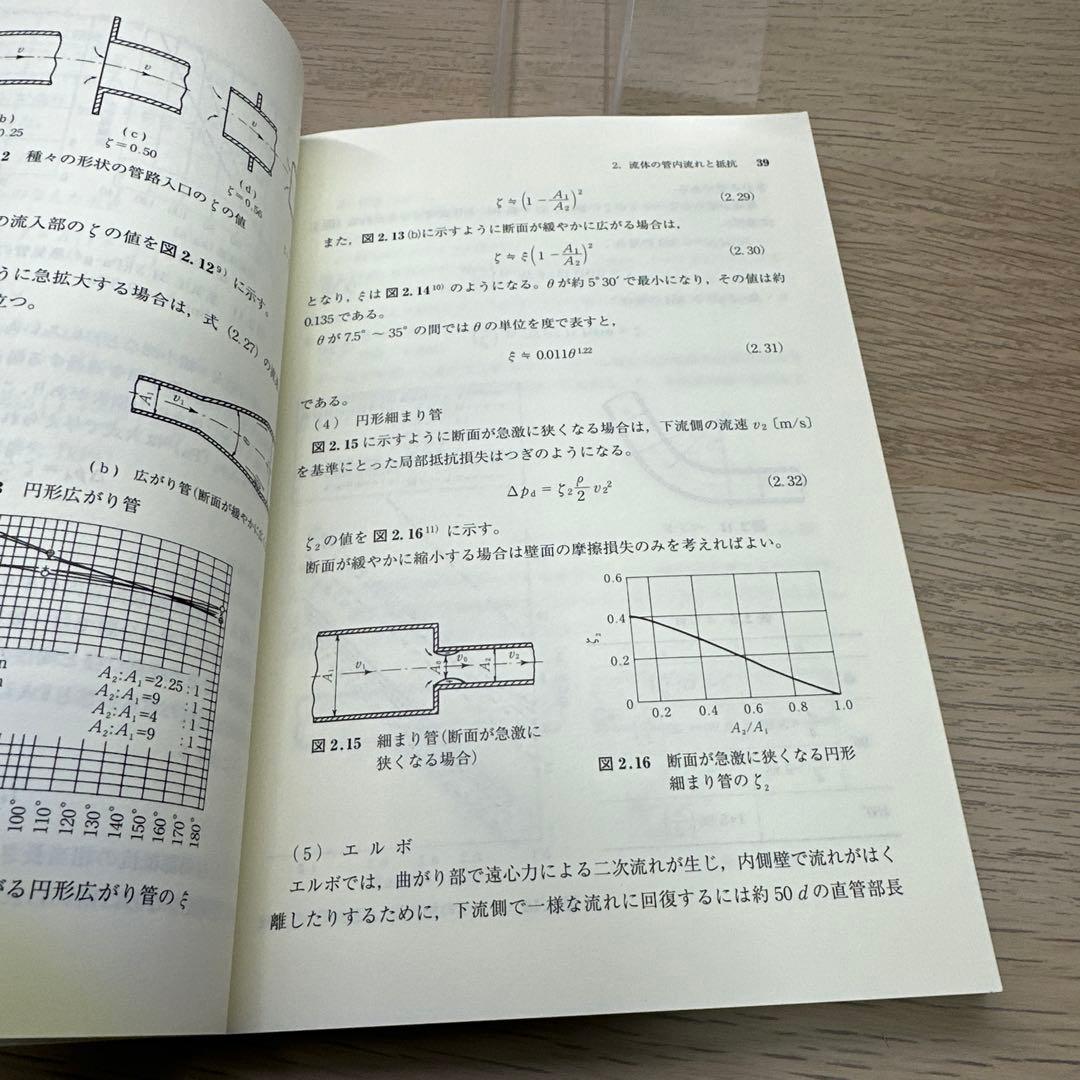 υ
υ
υ
0.25
(c)
ζ=0.50
(d)
ζ=0.56
2 種々の形状の管路入口のζの値
の流入部のζの値を図2.12⁹⁾に示す。
うに急拡大する場合は，式(2.27)の
立つ。
A₁
υ₁
θ
(b) 広がり管(断面が緩やかに
円形広がり管
A₂:A₁=2.25:1
A₂:A₁=9 :1
A₂:A₁=4 :1
A₂:A₁=9 :1
100° 110° 120° 130° 140° 150° 160° 170° 180°
る円形広がり管のξ
2. 流体の管内流れと抵抗 39
ζ≒(1−A₁/A₂)² (2.29)
また，図2.13(b)に示すように断面が緩やかに広がる場合は，
ζ≒ξ(1−A₁/A₂)² (2.30)
となり，ξは図2.14¹⁰⁾のようになる。θが約5°30′で最小になり，その値は約
0.135である。
θが7.5°～35°の間ではθの単位を度で表すと，
ξ≒0.011θ¹·²² (2.31)
である。
(4) 円形細まり管
図2.15に示すように断面が急激に狭くなる場合は，下流側の流速υ₂〔m/s〕
を基準にとった局部抵抗損失はつぎのようになる。
Δp_d=ζ₂ρ/2 υ₂² (2.32)
ζ₂の値を図2.16¹¹⁾に示す。
断面が緩やかに縮小する場合は壁面の摩擦損失のみを考えればよい。
A₁ υ₁ A₀ υ₀ A₂ υ₂
図2.15 細まり管(断面が急激に
狭くなる場合)
0.6
0.4
ζ₂
0.2
0 0.2 0.4 0.6 0.8 1.0
A₂/A₁
図2.16 断面が急激に狭くなる円形
細まり管のζ₂
(5) エルボ
エルボでは，曲がり部で遠心力による二次流れが生じ，内側壁で流れがはく
離したりするために，下流側で一様な流れに回復するには約50dの直管部長